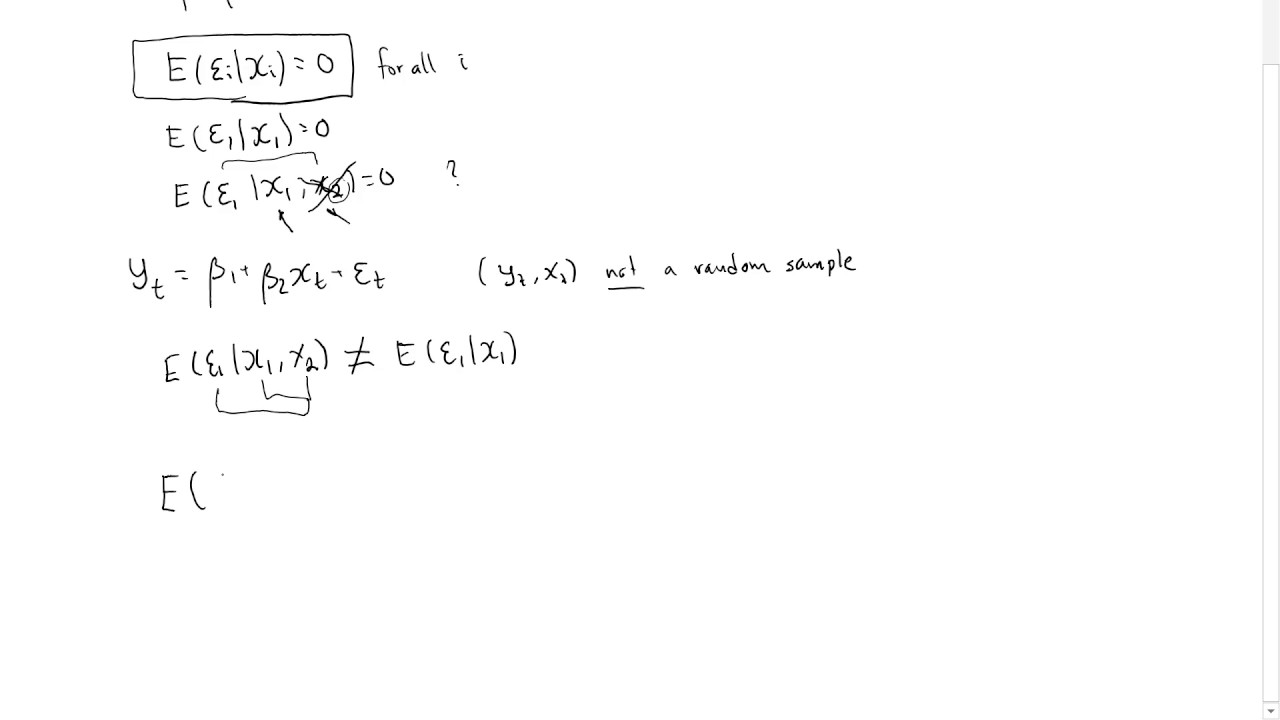 E(εi|xi)=0 for all i
E(ε₁|x₁)=0
E(ε₁|x₁, x₂)=0 ?
yₜ = β₁+ β₂xₜ - εₜ (yₜ, xₜ) not a random sample
E(ε₁|x₁, x₂) ≠ E(ε₁|x₁)
E(